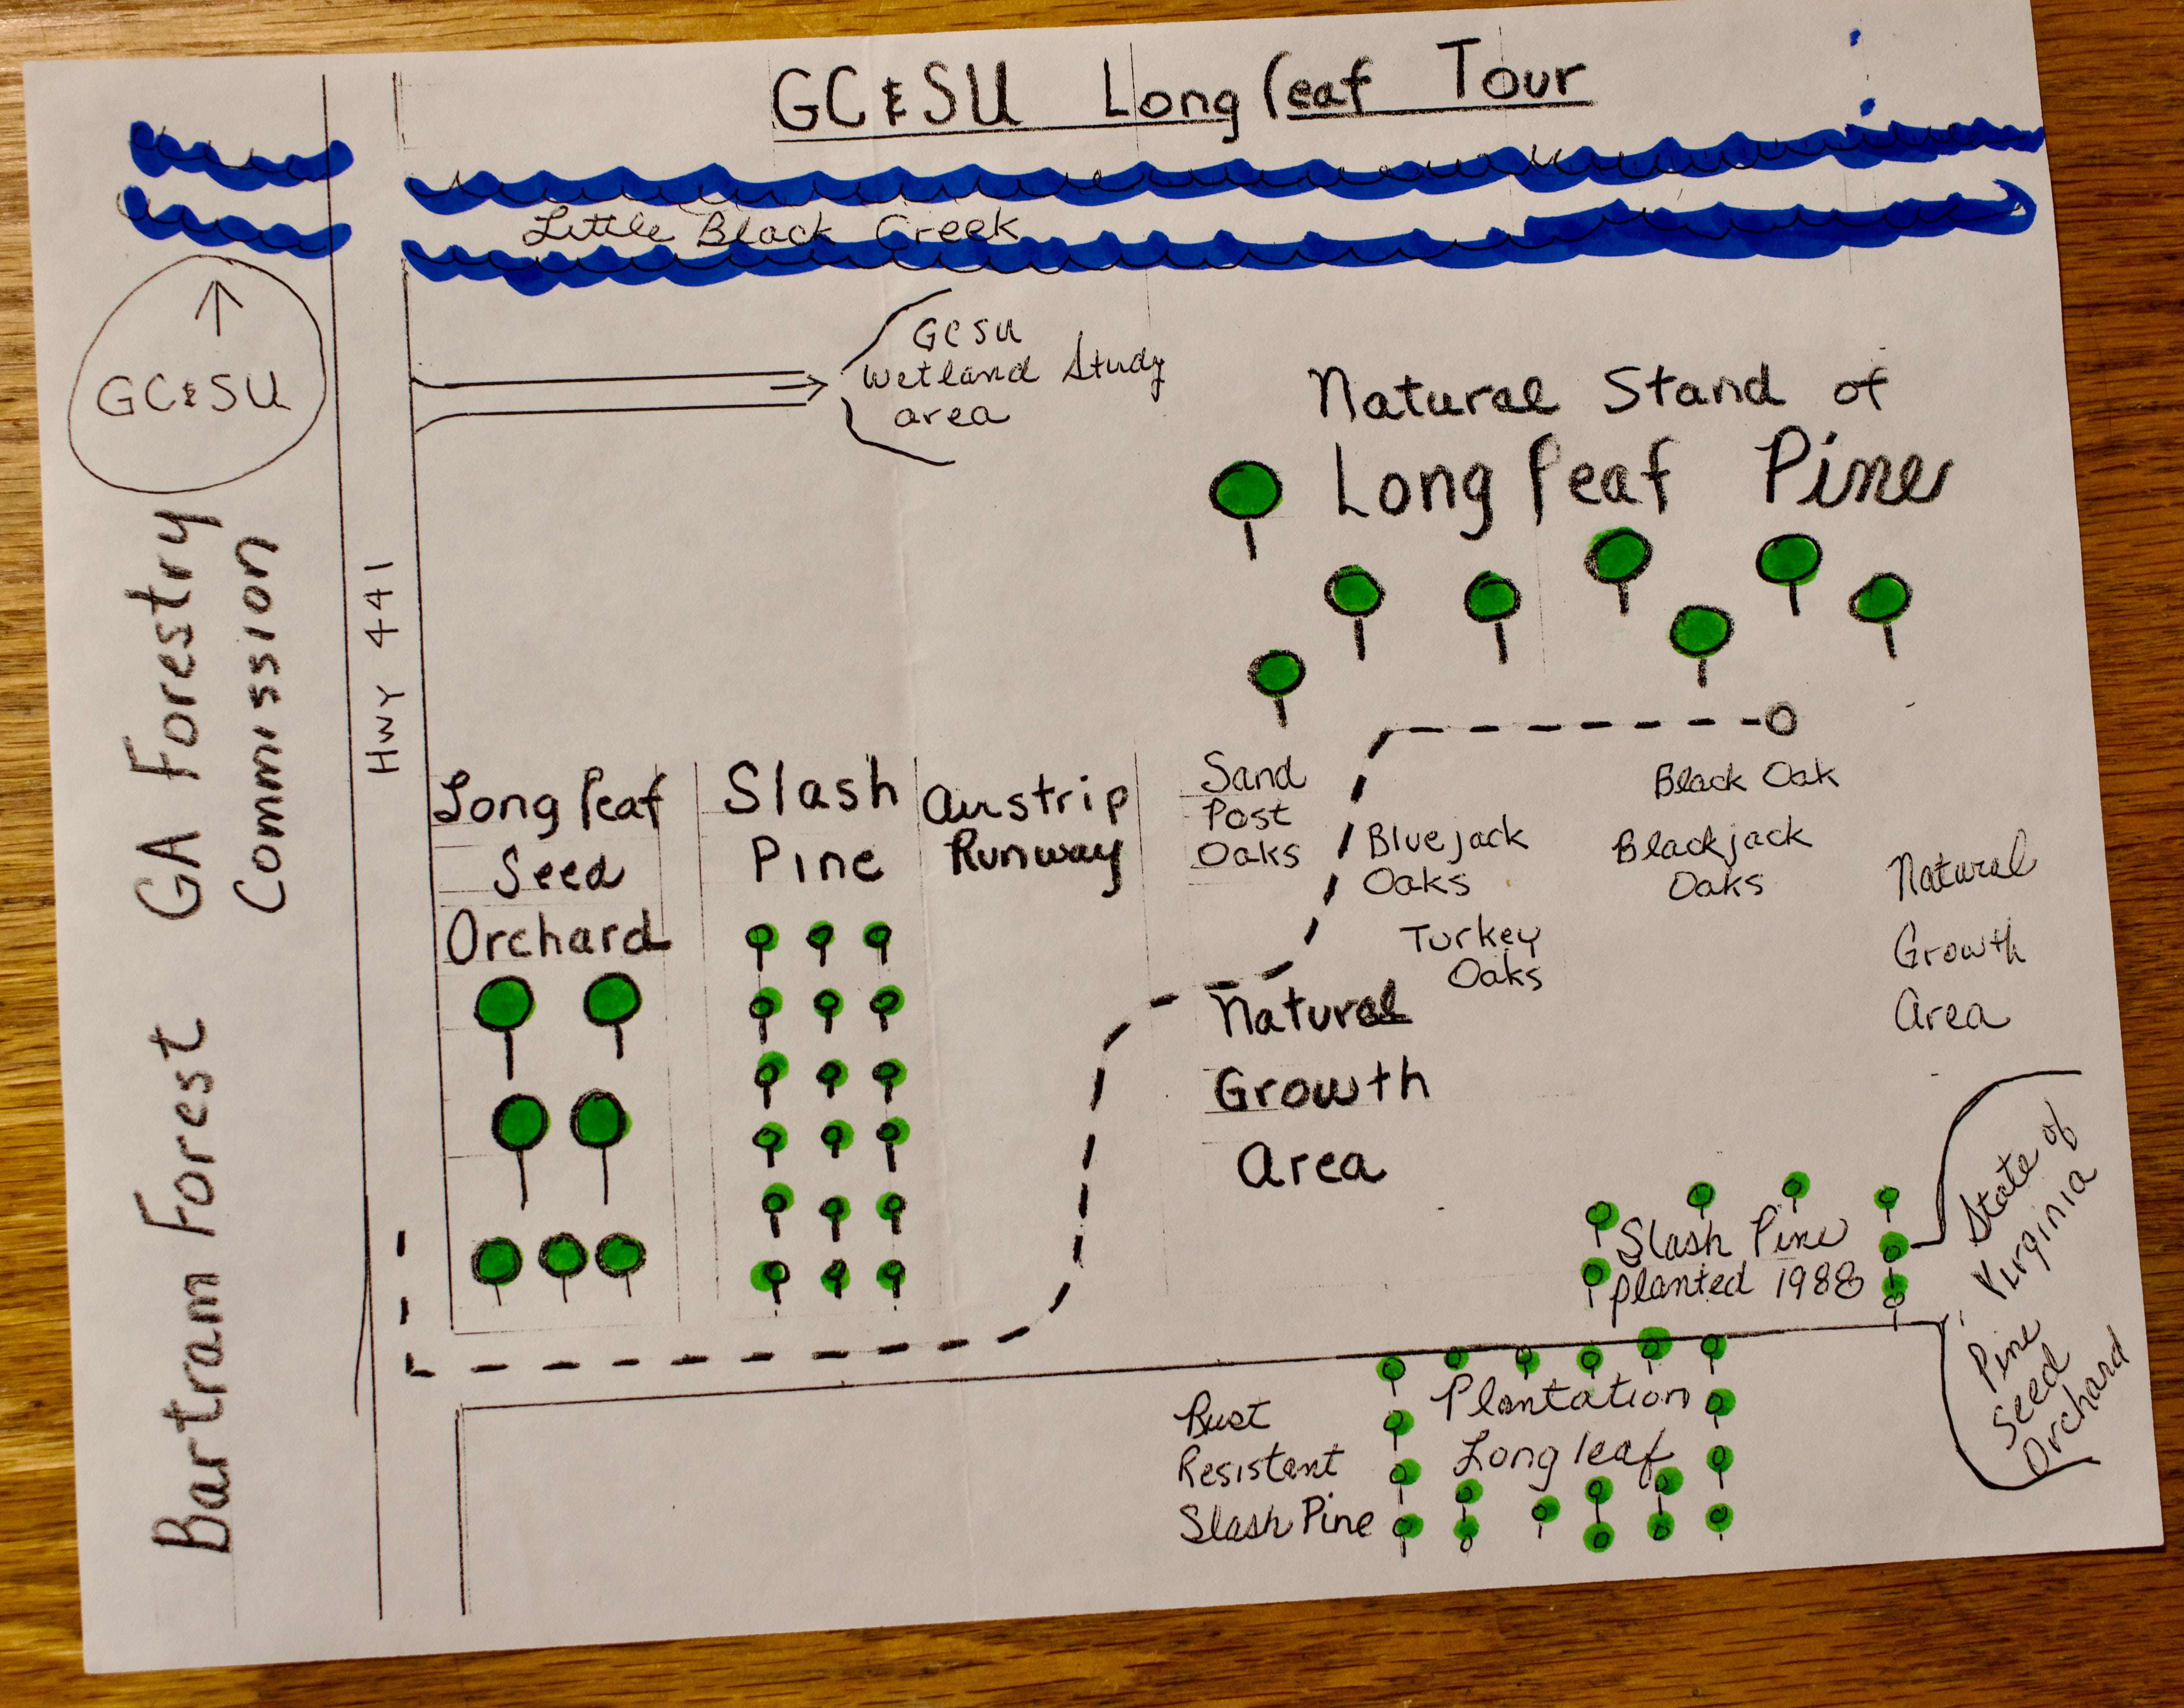 GC&SU Longleaf Tour
Little Black Creek
GC&SU
GCSU
Wetland Study
area
Natural Stand of
Longleaf Pine
GA Forestry
Commission
Bartram Forest
Hwy 441
Longleaf
Seed
Orchard
Slash
Pine
Airstrip
Runway
Sand
Post
Oaks
Bluejack
Oaks
Turkey
Oaks
Black Oak
Blackjack
Oaks
Natural
Growth
Area
Natural
Growth
Area
Slash Pine
planted 1988
State of
Virginia
Pine
Seed
Orchard
Rust
Resistant
Slash Pine
Plantation
Longleaf